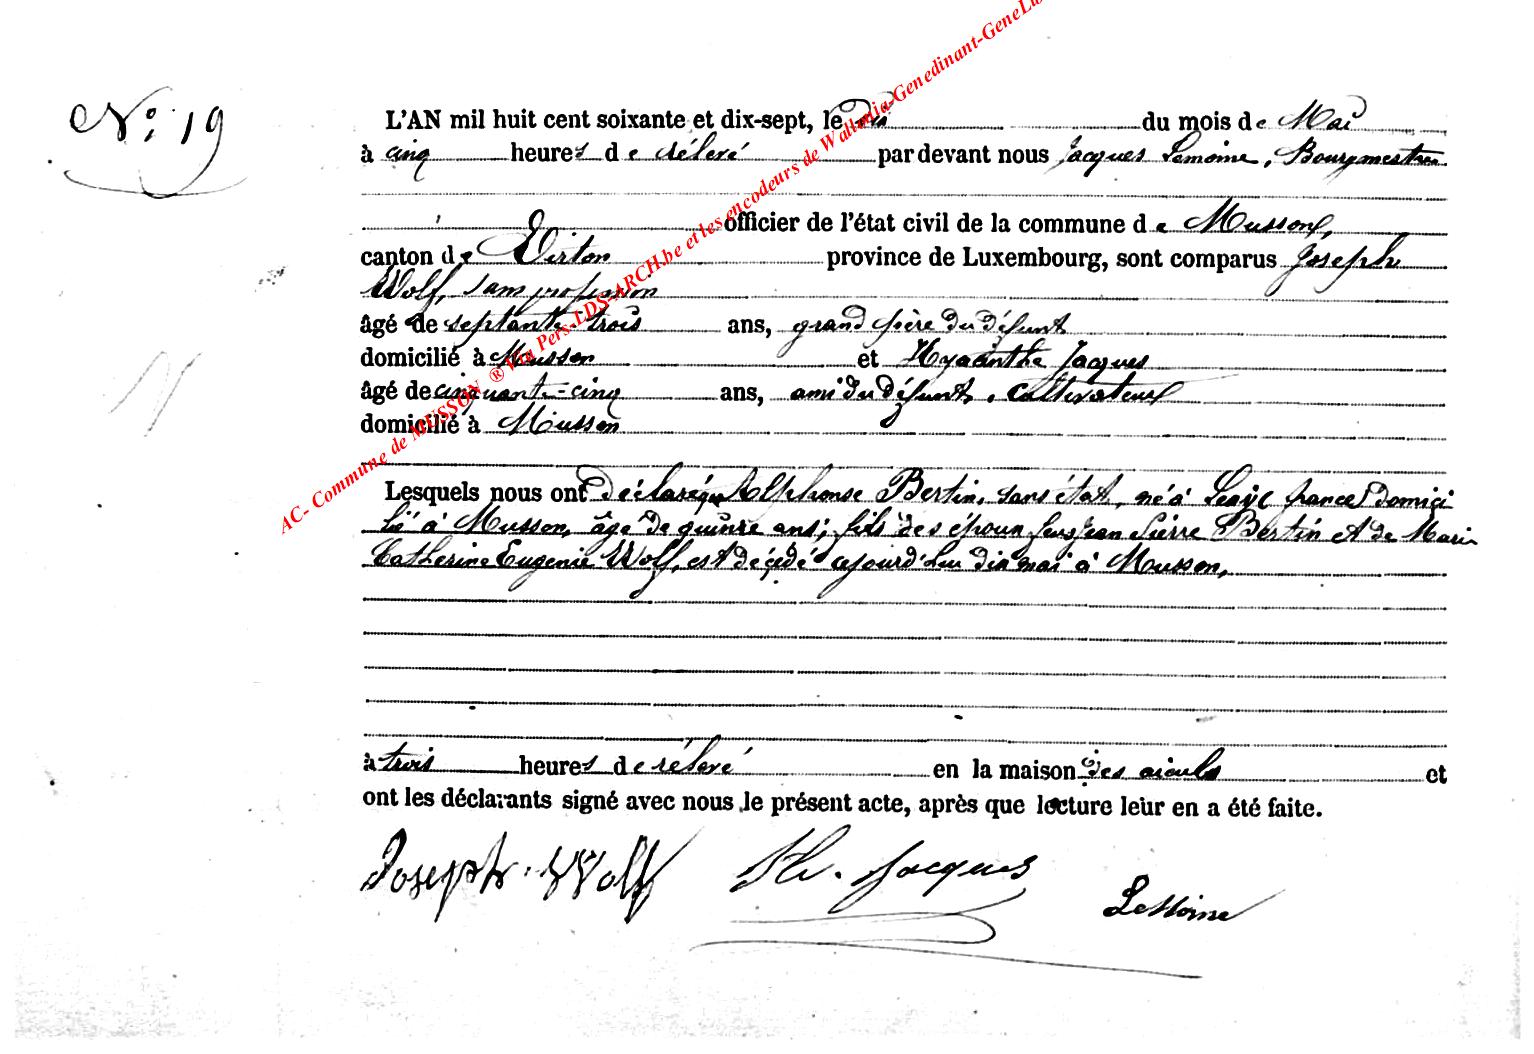 N° 19
L'AN mil huit cent soixante et dix-sept, le dix du mois de Mai
à cinq heures de rélevé par devant nous Jacques Lemoine, Bourgmestre
officier de l'état civil de la commune de Musson,
canton de Virton province de Luxembourg, sont comparus Joseph
Wolf, sans profession
âgé de septante trois ans, grand père du défunt
domicilié à Musson et Hyacinthe Jacques
âgé de cinquante-cinq ans, ami du défunt, cultivateur
domicilié à Musson
Lesquels nous ont déclaré que Alphonse Bertin, sans état, né à france domici
lié à Musson, âgé de quinze ans; fils des époux feus Jean Pierre Bertin et de Marie
Catherine Eugenie Wolf, est décédé cejourd'hui dix mai à Musson,
à trois heures de rélevé en la maison des aieuls et
ont les déclarants signé avec nous le présent acte, après que lecture leur en a été faite.
Joseph Wolf H. Jacques LeMoine
AC- Commune de MUSSON ® Via Pers-LDS-ARCH.be et les encodeurs de Wallonia-Genedinant-GeneLu